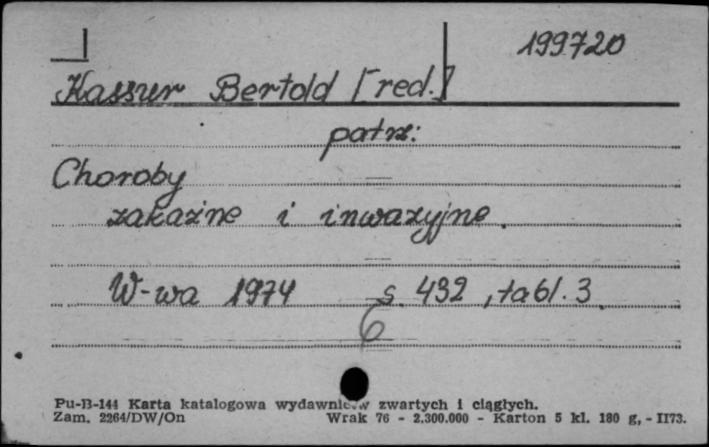 199720
Kassur Bertold [red.]
patrz:
Choroby
zakaźne i inwazyjne.
W-wa 1974 s. 432, tabl. 3.
6
Pu-B-144 Karta katalogowa wydawnictw zwartych i ciągłych.
Zam. 2264/DW/On Wrak 76 - 2.300.000 - Karton 5 kl. 180 g, - II73.